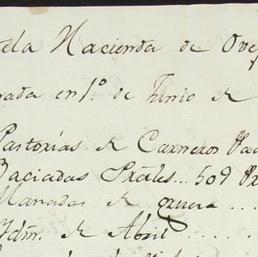 tela Hacienda de Ove
rada en 1.º de Junio de
Pastorías de Carneros Pad
Vaciadas Prales... 509
Manadas de gruesa ....
Ydm. de Abril .....